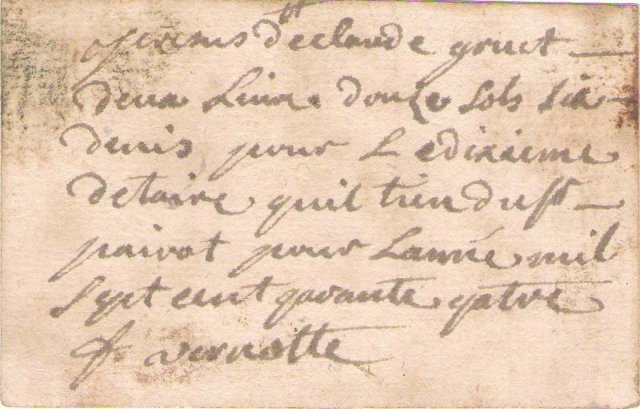 declaude gruet
deux Livre douze sols six
denis pour Ledixieme
detaire quil tien du sr
pairot pour Lannée mil
sept cent garante gatre
f vernotte